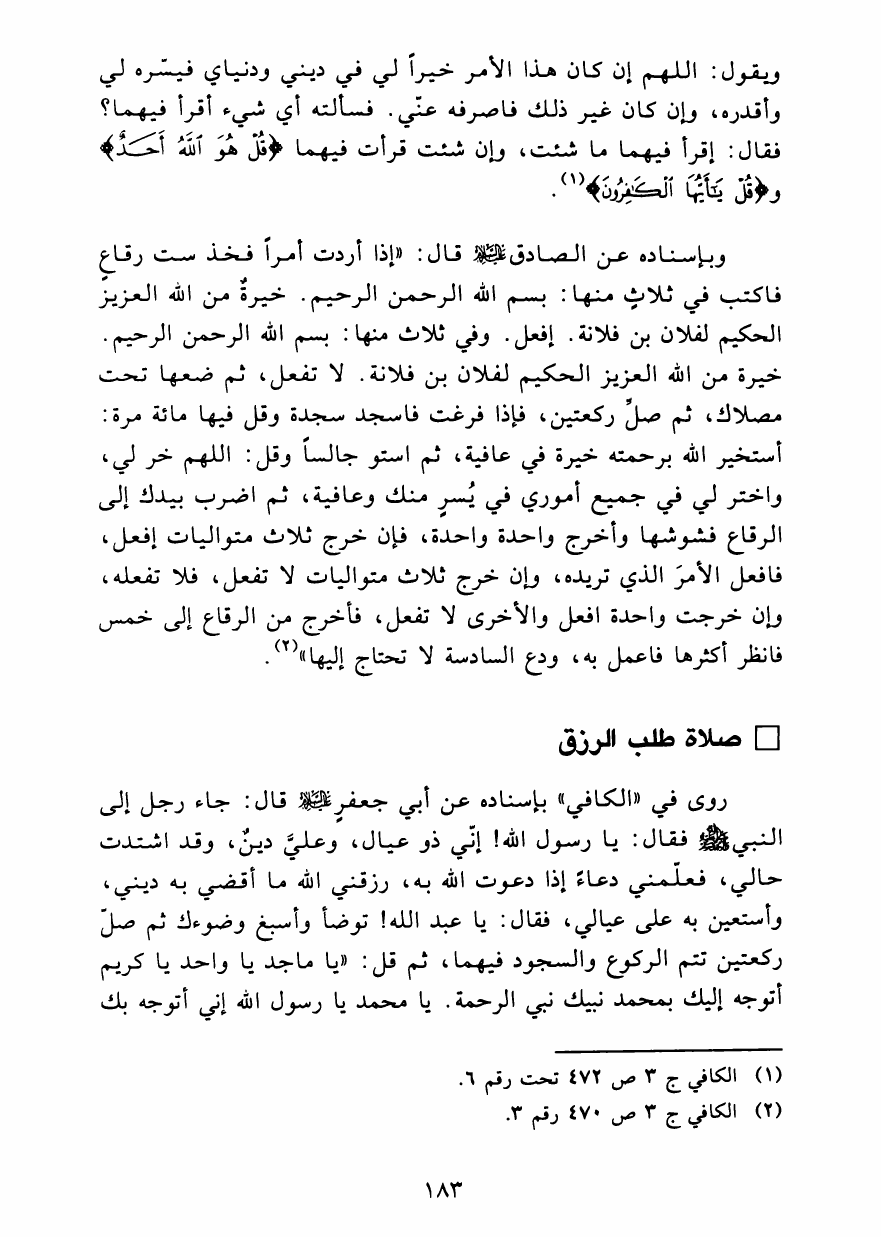 ويقول: اللهم إن كان هذا الأمر خيراً لي في ديني ودنياي فيسّره لي
وأقدره، وإن كان غير ذلك فاصرفه عنّي. فسألته أي شيء أقرأ فيهما؟
فقال: إقرأ فيهما ما شئت، وإن شئت قرأت فيهما ﴿قُلْ هُوَ ٱللَّهُ أَحَـدٌ﴾
و﴿قُلْ يَٰٓأَيُّهَا ٱلْكَٰفِرُونَ﴾(١).
وبإسناده عن الصادق عليه السلام قال: «إذا أردت أمراً فخذ ست رقاعٍ
فاكتب في ثلاثٍ منها: بسم الله الرحمن الرحيم. خيرةٌ من الله العزيز
الحكيم لفلان بن فلانة. إفعل. وفي ثلاث منها: بسم الله الرحمن الرحيم.
خيرة من الله العزيز الحكيم لفلان بن فلانة. لا تفعل، ثم ضعها تحت
مصلاك، ثم صلِّ ركعتين، فإذا فرغت فاسجد سجدة وقل فيها مائة مرة:
أستخير الله برحمته خيرة في عافية، ثم استو جالساً وقل: اللهم خر لي،
واختر لي في جميع أموري في يُسرٍ منك وعافية، ثم اضرب بيدك إلى
الرقاع فشوشها وأخرج واحدة واحدة، فإن خرج ثلاث متواليات إفعل،
فافعل الأمرَ الذي تريده، وإن خرج ثلاث متواليات لا تفعل، فلا تفعله،
وإن خرجت واحدة افعل والأخرى لا تفعل، فأخرج من الرقاع إلى خمس
فانظر أكثرها فاعمل به، ودع السادسة لا تحتاج إليها»(٢).
□ صلاة طلب الرزق
روى في «الكافي» بإسناده عن أبي جعفرٍ عليه السلام قال: جاء رجل إلى
النبي ﷺ فقال: يا رسول الله! إنّي ذو عيال، وعليَّ دينٌ، وقد اشتدت
حالي، فعلّمني دعاءً إذا دعوت الله به، رزقني الله ما أقضي به ديني،
وأستعين به على عيالي، فقال: يا عبد الله! توضأ وأسبغ وضوءك ثم صلّ
ركعتين تتم الركوع والسجود فيهما، ثم قل: «يا ماجد يا واحد يا كريم
أتوجه إليك بمحمد نبيك نبي الرحمة. يا محمد يا رسول الله إني أتوجه بك
(١) الكافي ج ٣ ص ٤٧٢ تحت رقم ٦.
(٢) الكافي ج ٣ ص ٤٧٠ رقم ٣.
١٨٣